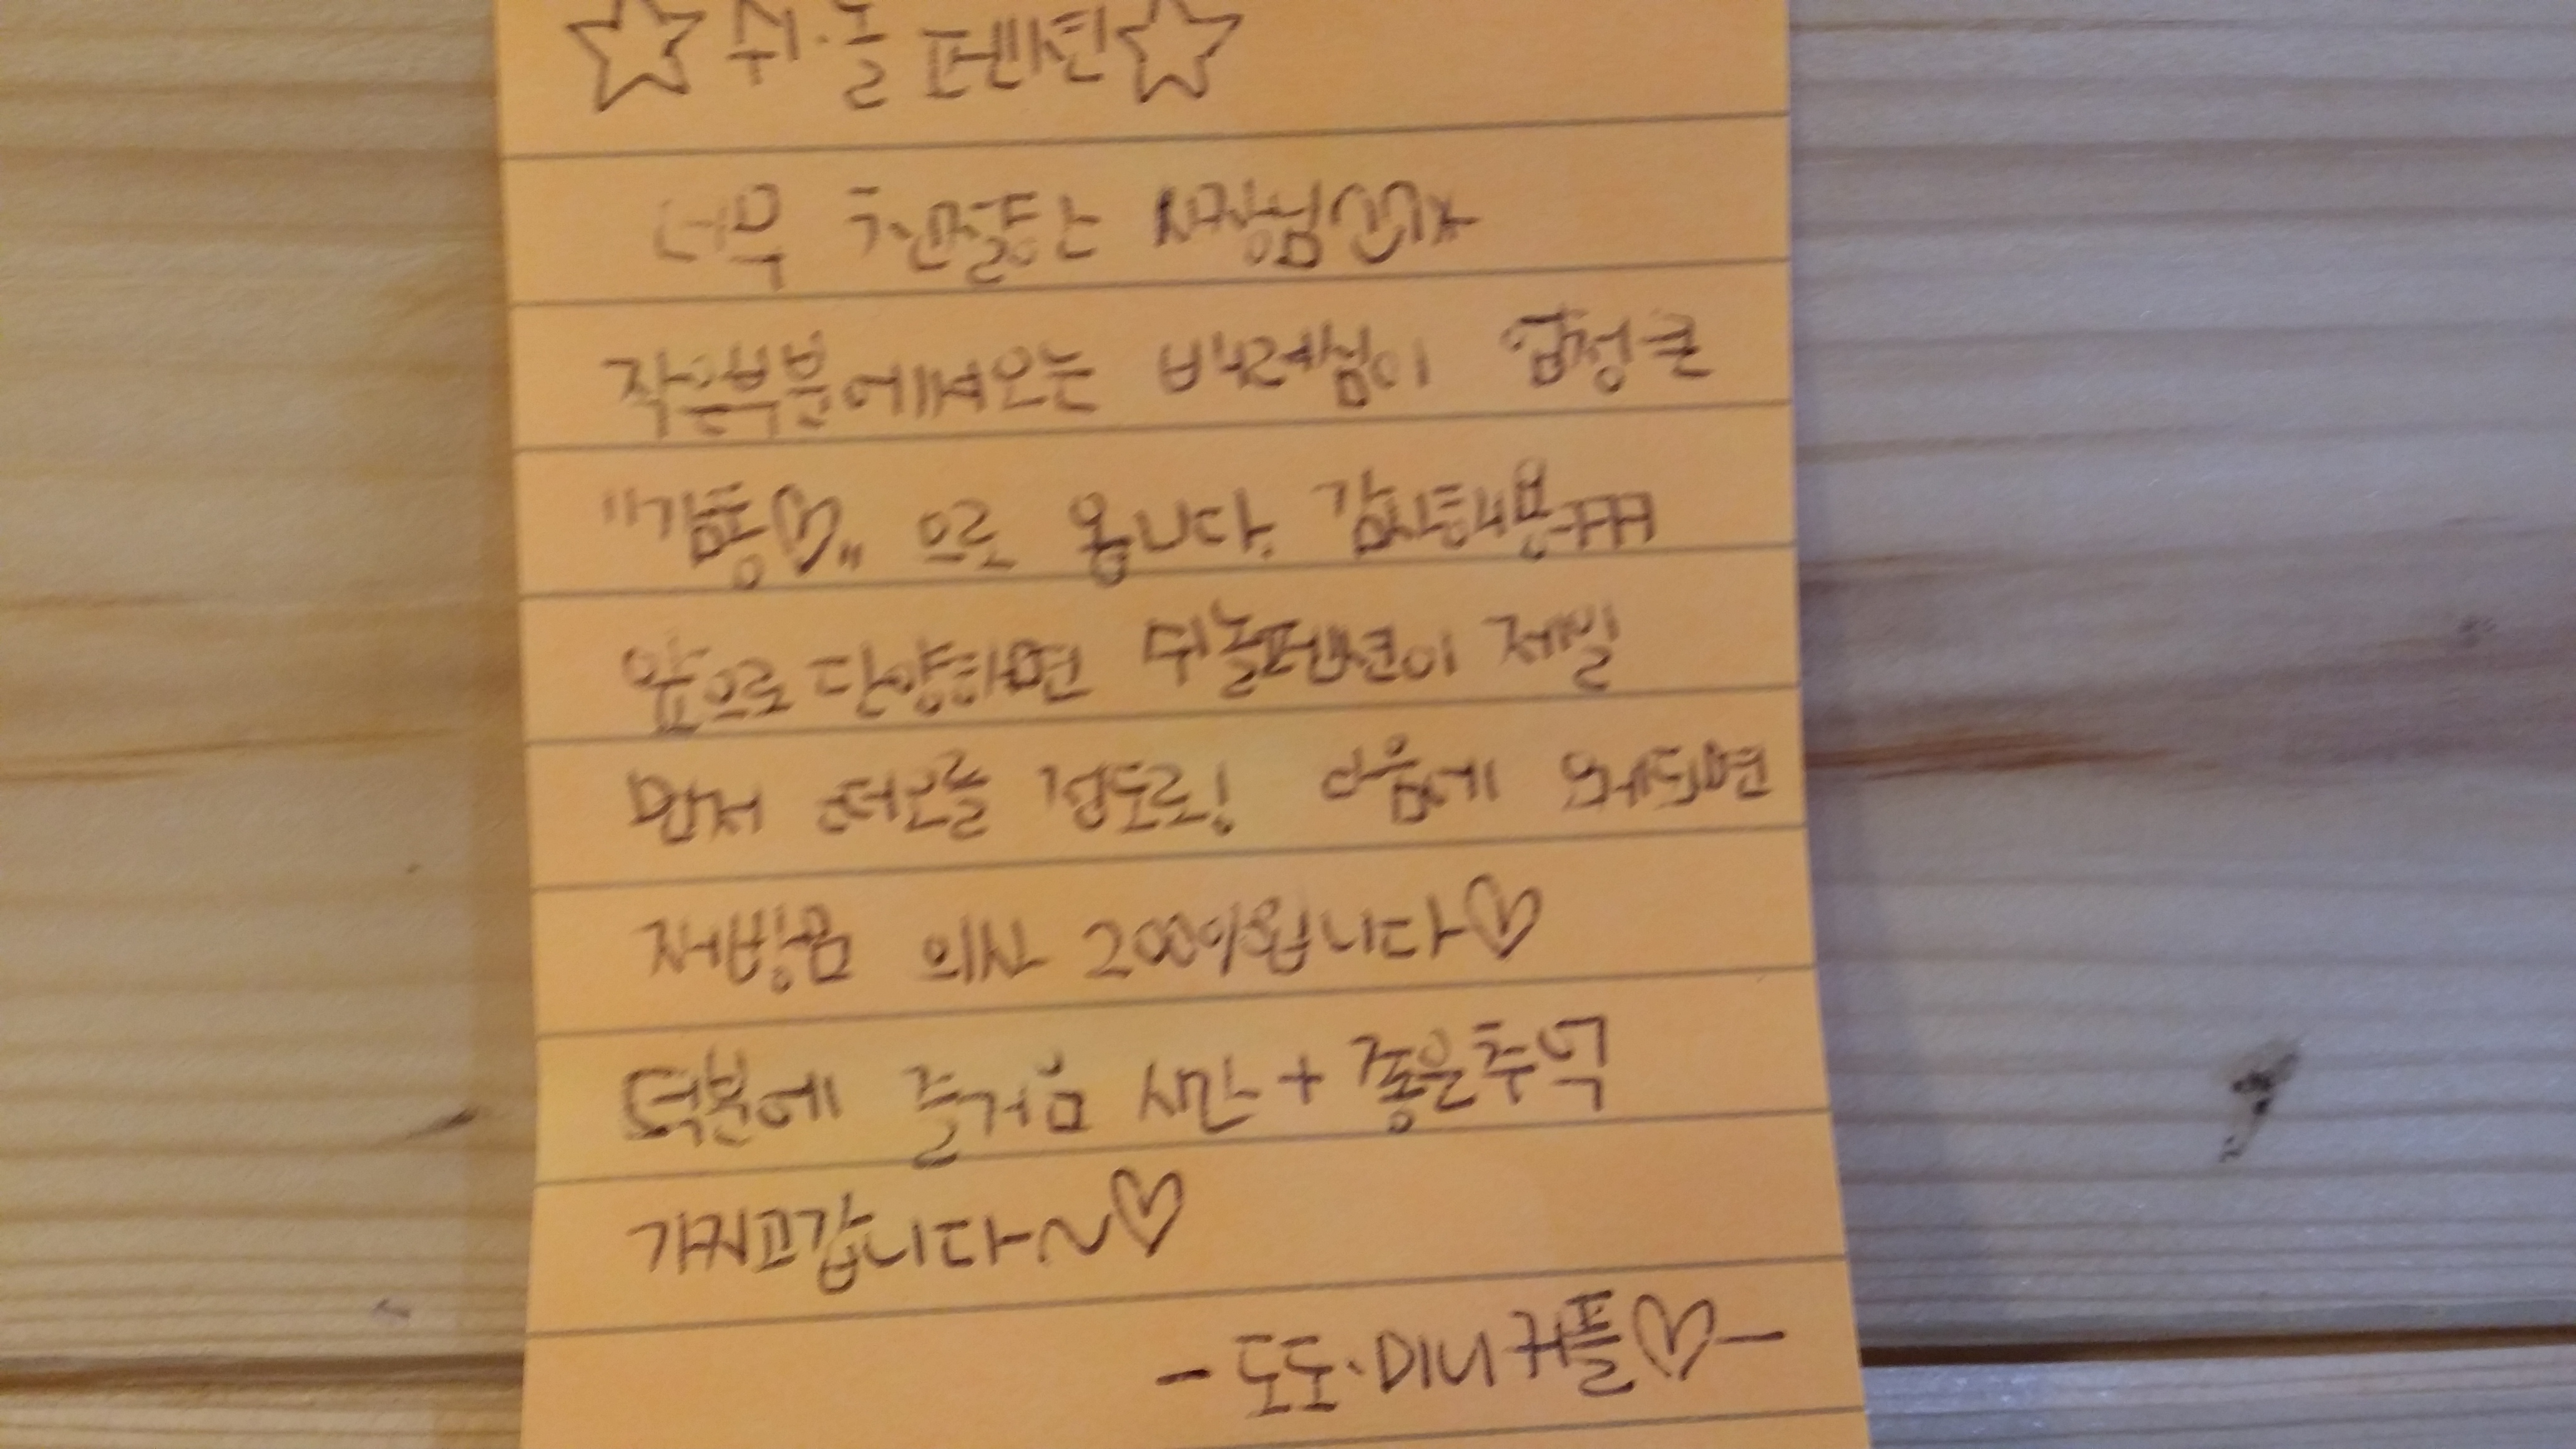 ☆쉬·놀 펜션☆
너무 친절한 사장님
작은부분에서오는 배려심이 엄청 큰
"감동♡" 으로 옵니다. 감사해용ㅠㅠ
앞으로 단양하면 쉬놀펜션이 제일
먼저 떠오를 정도로! 다음에 오게되면
재방문 의사 200%입니다♡
덕분에 즐거운 시간 + 좋은추억
가지고갑니다~♡
- 도도·미니커플♡-